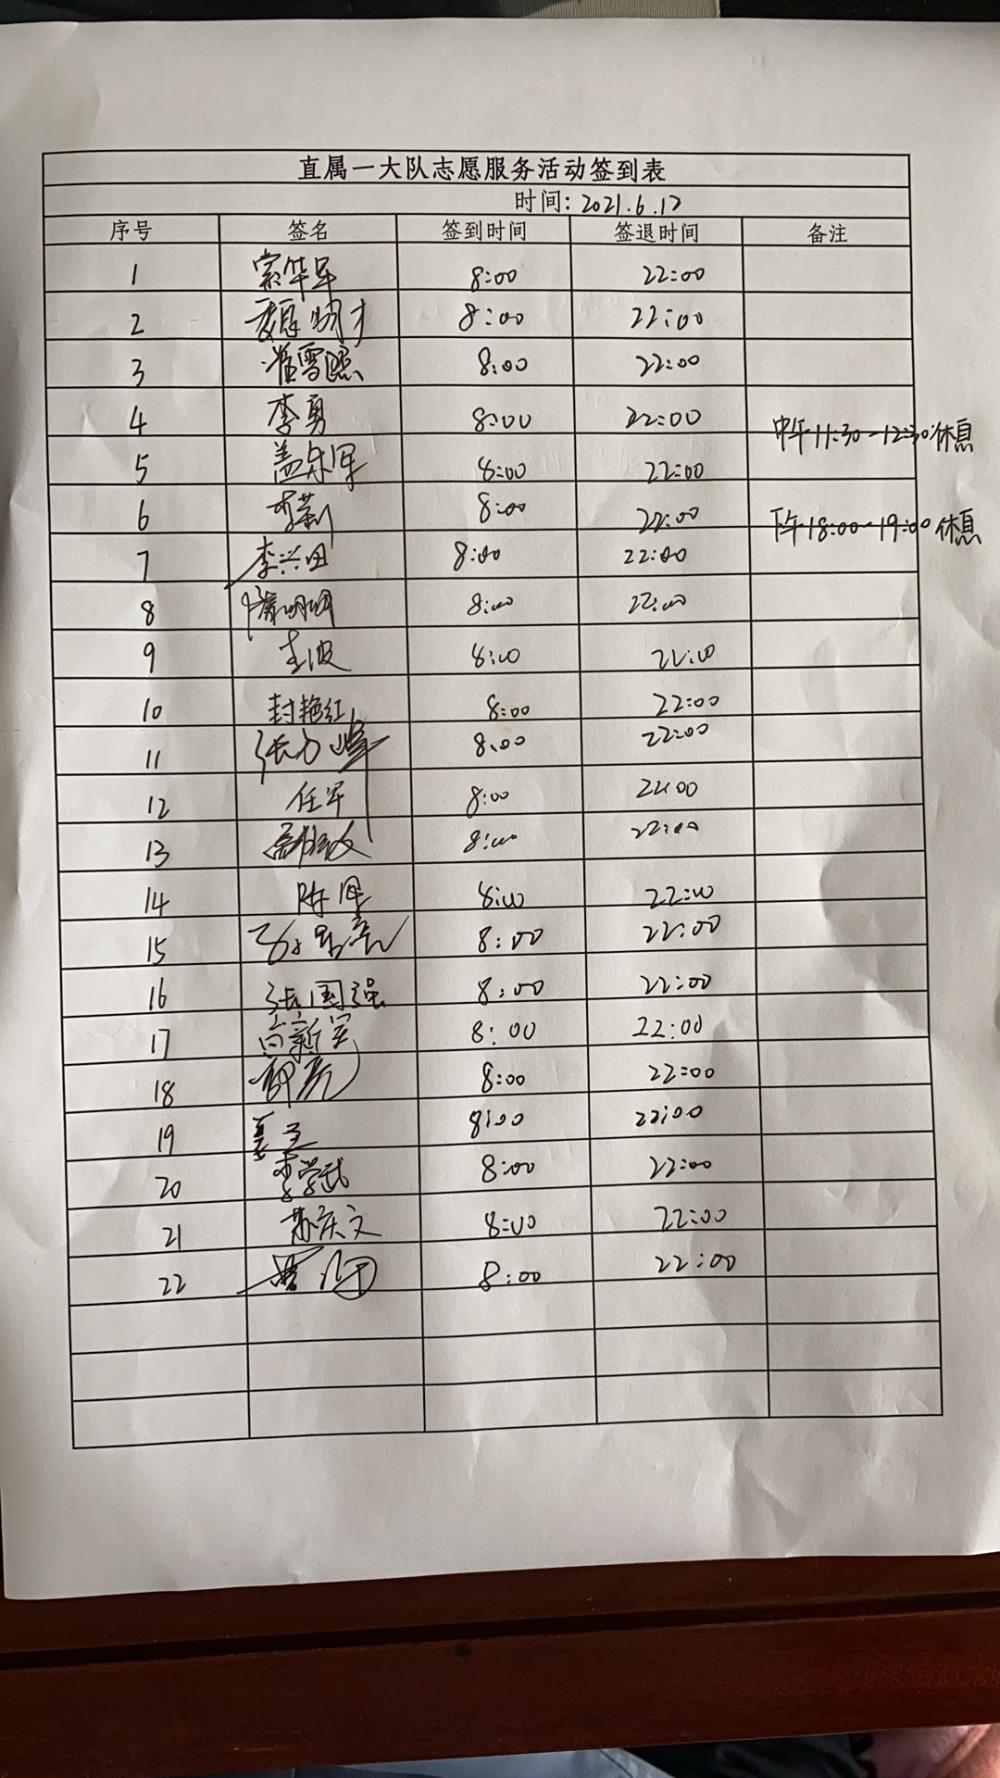 直属一大队志愿服务活动签到表
时间: 2021.6.17
序号 签名 签到时间 签退时间 备注
1 索华军 8:00 22:00
2 8:00 22:00
3 8:00 22:00
4 李勇 8:00 22:00 中午11:30-12:30休息
5 盖乐军 8:00 22:00
6 李莉 8:00 22:00 下午18:00-19:00休息
7 李兴田 8:00 22:00
8 隋明明 8:00 22:00
9 8:00 22:00
10 封艳红 8:00 22:00
11 张力峰 8:00 22:00
12 任军 8:00 22:00
13 8:00 22:00
14 陈军 8:00 22:00
15 8:00 22:00
16 张国强 8:00 22:00
17 高新军 8:00 22:00
18 8:00 22:00
19 8:00 22:00
20 李学武 8:00 22:00
21 苏庆文 8:00 22:00
22 8:00 22:00